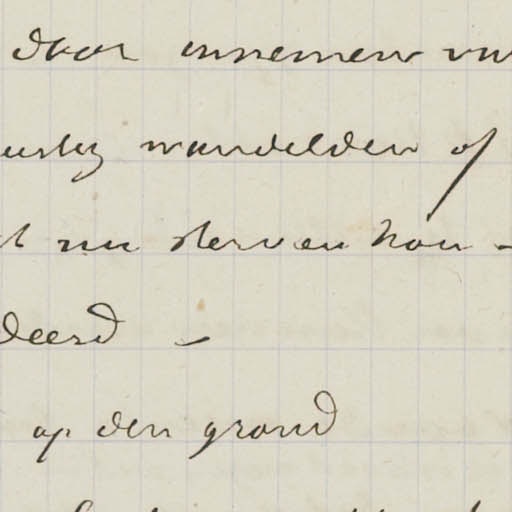 door innemen van
wandelden of
nu sterven hou -
deerd -
op den grond